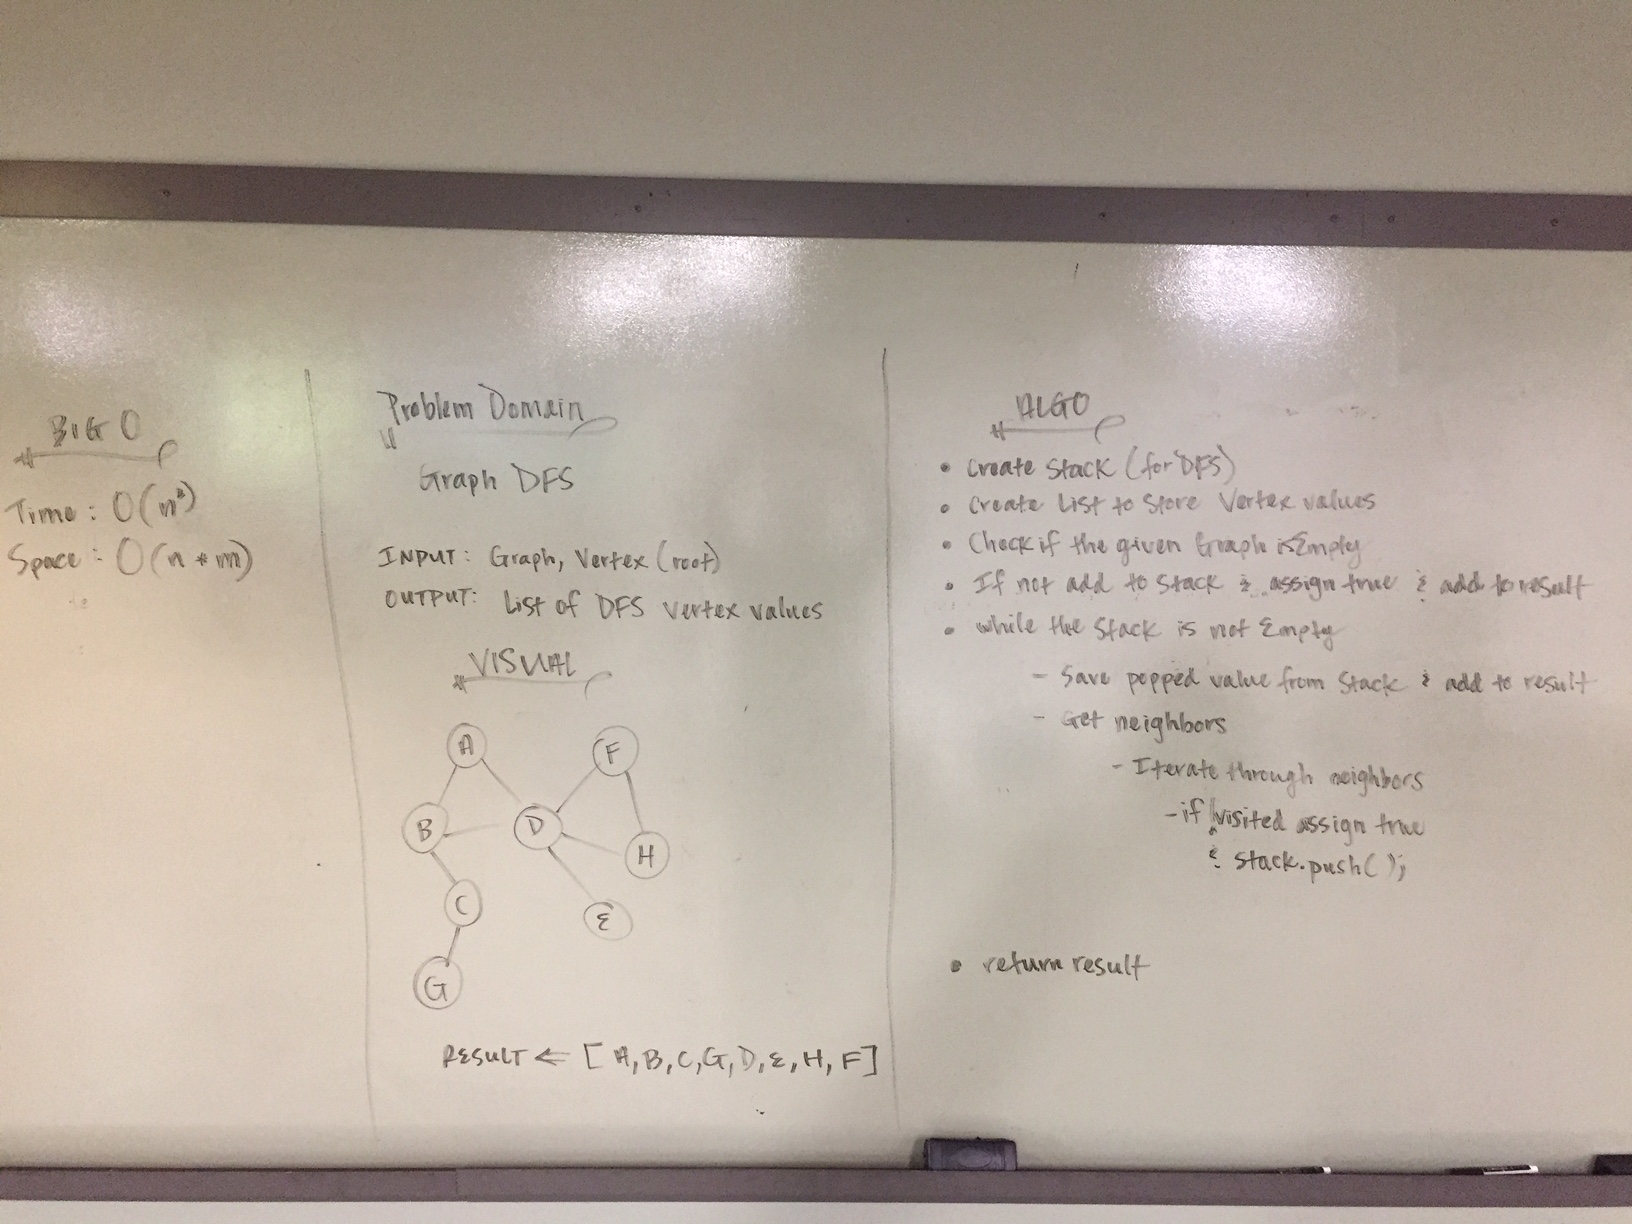 BIG O
Time: O(n²)
Space: O(n * m)
Problem Domain
Graph DFS
INPUT: Graph, Vertex (root)
OUTPUT: List of DFS vertex values
VISUAL
A
F
B
D
H
C
E
G
RESULT ← [A, B, C, G, D, E, H, F]
ALGO
• Create Stack (for DFS)
• Create List to Store Vertex values
• Check if the given Graph isEmpty
• If not add to Stack & assign true & add to result
• while the Stack is not Empty
- Save popped value from Stack & add to result
- Get neighbors
- Iterate through neighbors
- if !visited assign true
& Stack.push();
• return result